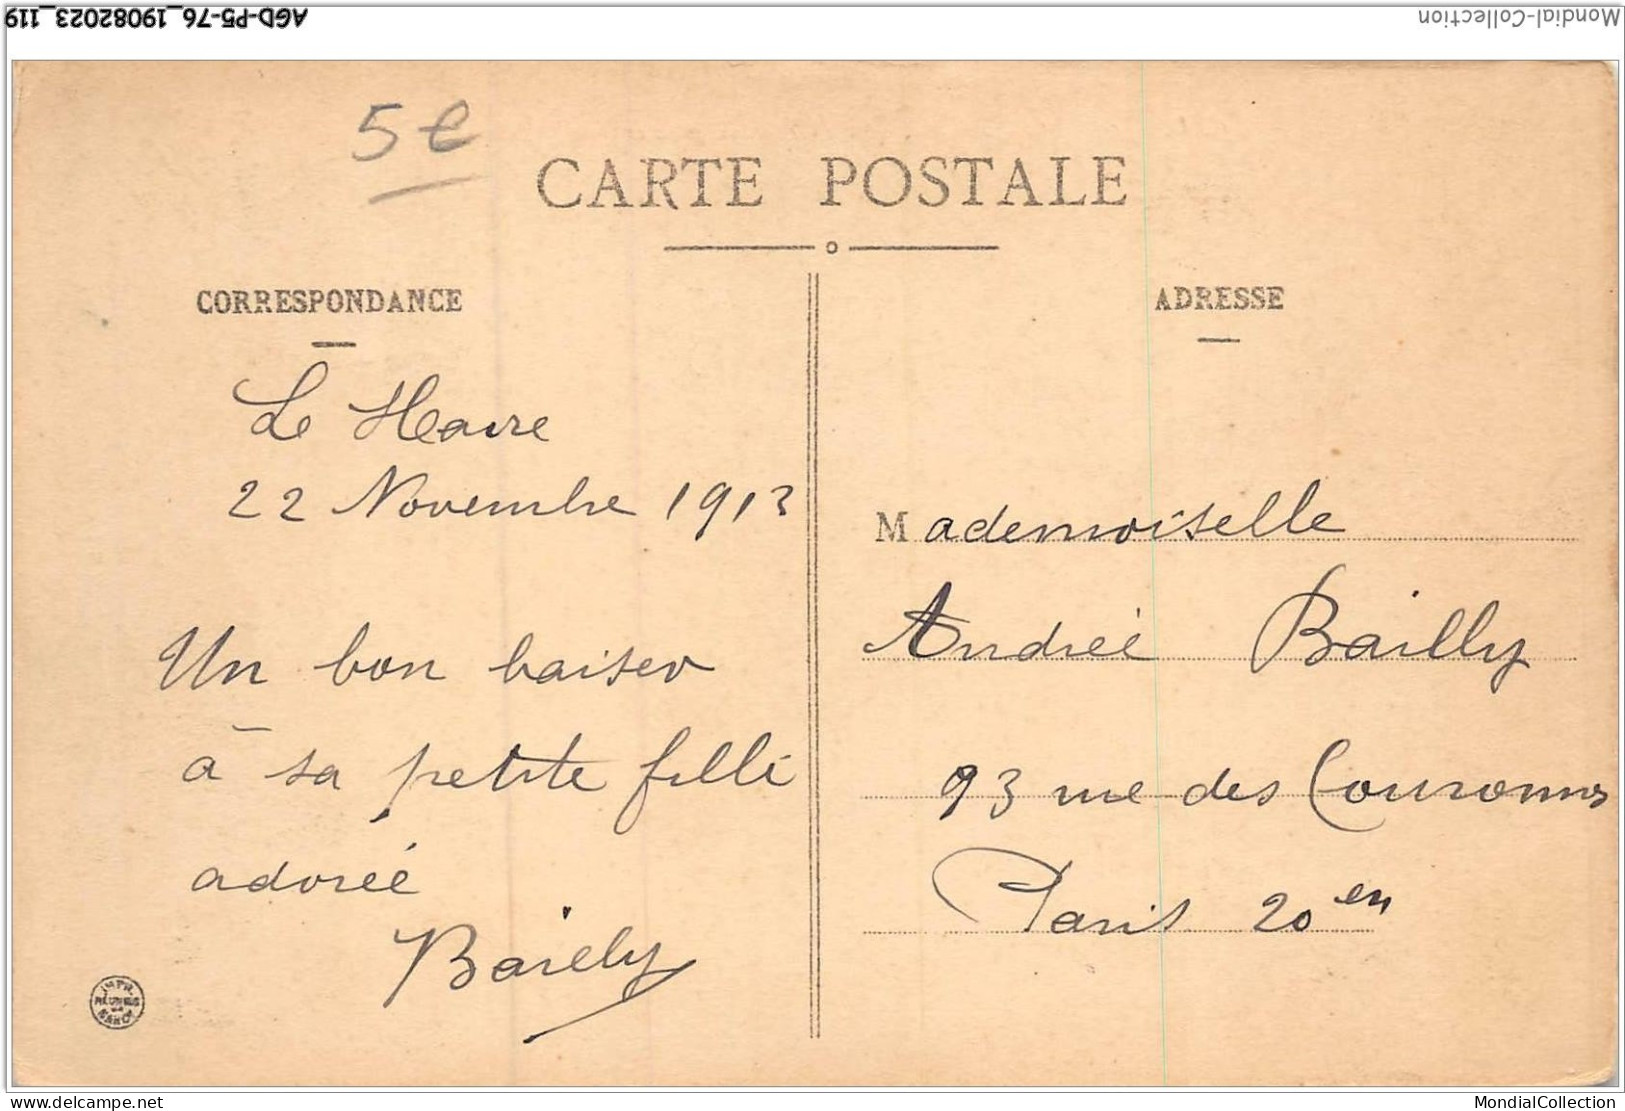 AGD-P5-76_19082023_119
Mondial-Collection
5€
CARTE POSTALE
CORRESPONDANCE
ADRESSE
Le Havre
22 Novembre 1913
Un bon baiser
à sa petite fille
adorée
Bailly
Mademoiselle
Andrée Bailly
93 rue des Couronnes
Paris 20 en
IMPR.
REUNIES
DE
NANCY
delcampe.net
MondialCollection